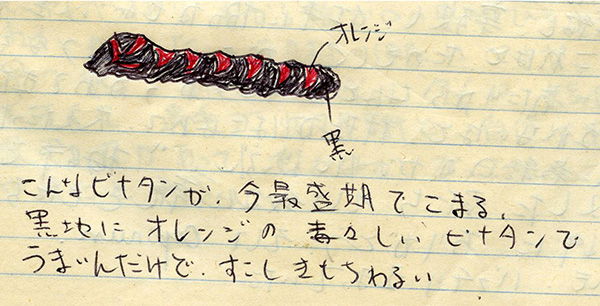 オレンジ
黒
こんなビナタンが、今最盛期でこまる、
黒地にオレンジの毒々しいビナタンで
うまいんだけど、すこしきもちわるい